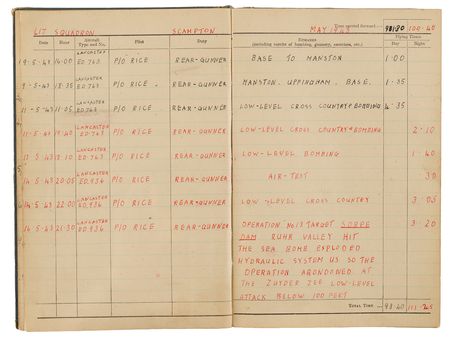 617 SQUADRON SCAMPTON
Date Hour Aircraft Type and No. Pilot Duty
LANCASTER
9·5·43 14:00 ED.763 P/O RICE REAR-GUNNER
LANCASTER
9·5·43 18:35 ED.763 P/O RICE REAR-GUNNER
LANCASTER
11·5·43 11:05 ED.763 P/O RICE REAR-GUNNER
LANCASTER
11·5·43 19:40 ED.763 P/O RICE REAR-GUNNER
LANCASTER
13·5·43 ED.763 P/O RICE REAR-GUNNER
LANCASTER
14·5·43 20:05 ED.936 P/O RICE REAR-GUNNER
LANCASTER
14·5·43 22:00 ED.936 P/O RICE REAR-GUNNER
LANCASTER
21:30 ED.936 P/O RICE REAR-GUNNER
MAY 1943 Time carried forward:— 100·40
Remarks Flying Times
(including results of bombing, gunnery, exercises, etc.) Day Night
BASE TO MANSTON 1·00
MANSTON. UPPINGHAM. BASE. 1·35
LOW-LEVEL CROSS COUNTRY & BOMBING 4·35
LOW-LEVEL CROSS COUNTRY & BOMBING 2·10
LOW-LEVEL BOMBING 1·40
AIR-TEST 30
LOW-LEVEL CROSS COUNTRY 3·05
OPERATION No 13 TARGET SORPE 3·20
DAM RUHR VALLEY HIT
THE SEA BOMB EXPLODED
HYDRAULIC SYSTEM US SO THE
OPERATION ABONDONED AT
THE ZUYDER ZEE LOW-LEVEL
ATTACK BELOW 100 FEET
TOTAL TIME